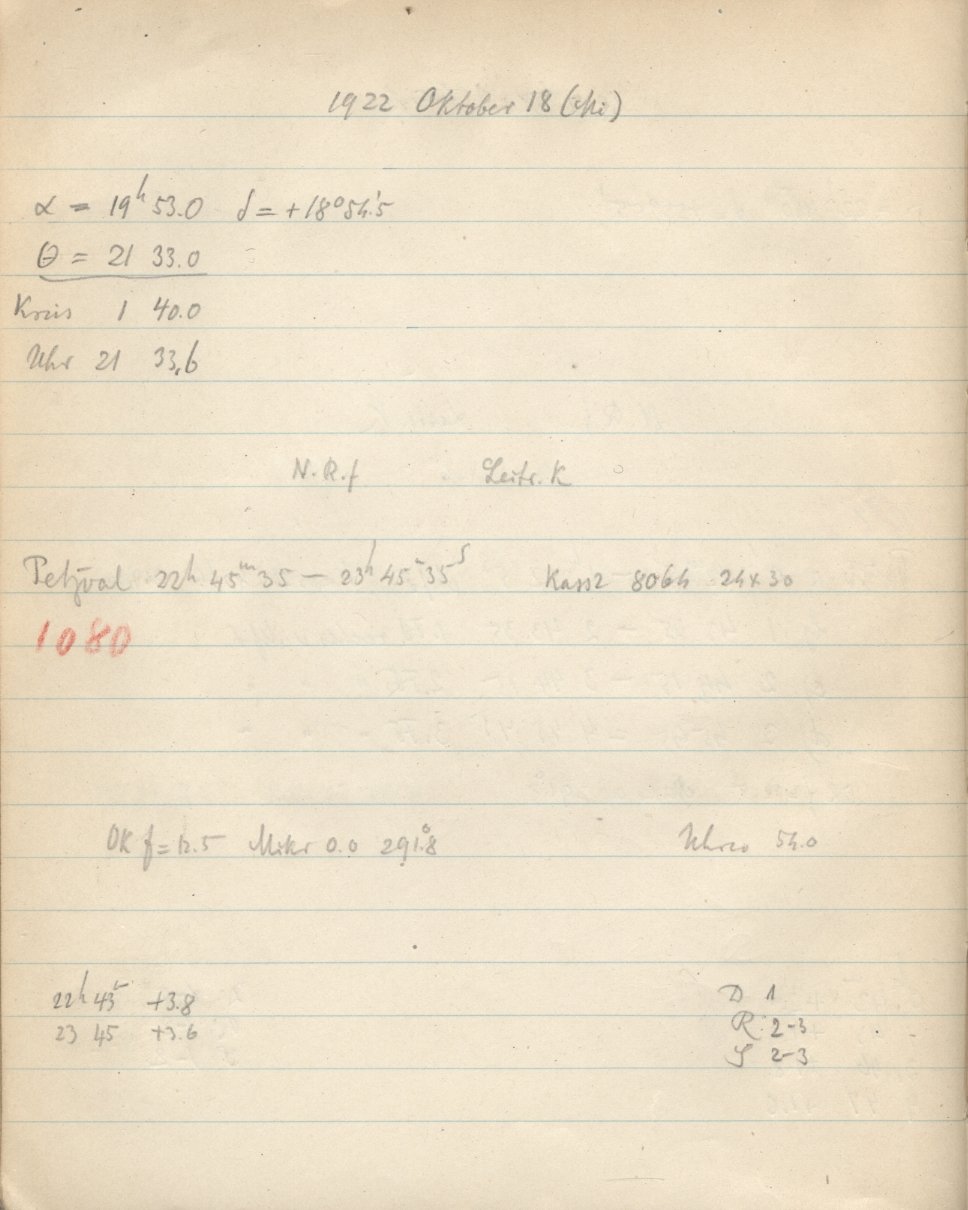 1922 Oktober 18 (Mi)
α = 19h 53.0 δ = +18° 54.'5
Θ = 21 33.0
Kreis 1 40.0
Uhr 21 33,6
N.R.f Leitr. K
Petzval 22h 45m 35 – 23h 45m 35s Kass2 8064 24x30
1080
OK f = 12.5 Mikr 0.0 291.°8 54.0
22h 43m +3.8 D 1
23 45 +3.6 R 2-3
S 2-3